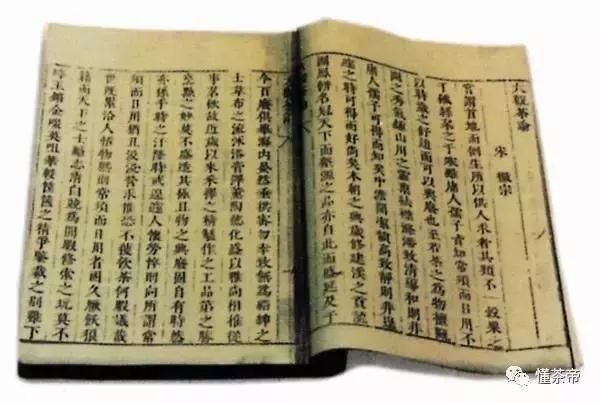 大觀茶論
宋 徽宗
嘗謂首地而倒生所以供人求者其類不一穀粟之
于飢絲枲之于寒雖庸人孺子皆知常須而日用不
以時歲之舒迫而可以興廢也至若茶之為物擅甌
閩之秀氣鍾山川之靈稟祛襟滌滯致清導和則非
庸人孺子可得而知矣中澹閒潔韻高致靜則非遑
遽之時可得而好尚矣本朝之興歲修建溪之貢龍
團鳳餅名冠天下而壑源之品亦自此而盛延及于
今百廢俱舉海內晏然垂拱密勿幸致無為縉紳之
士韋布之流沐浴膏澤薰陶德化盛以雅尚相推從
事茗飲故近歲以來采擇之精製作之工品第之勝
烹點之妙莫不盛造其極且物之興廢固自有時然
亦係乎時之汙隆時或遑遽人懷勞悴則向所謂常
須而日用猶且汲汲營求惟恐不獲飲茶何暇議哉
世既累洽人恬物熙則常須而日用者固久厭飫狼
藉而天下之士勵志清白競為閒暇修索之玩莫不
碎玉鏘金啜英咀華較筐篋之精爭鑒裁之別雖下
懂茶帝